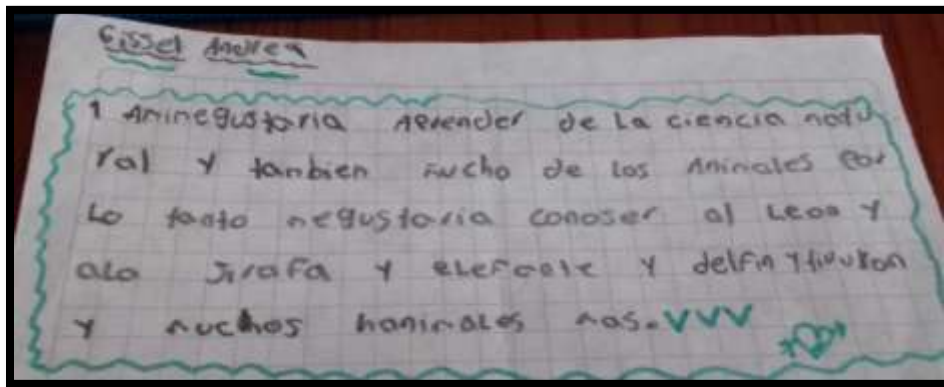 Gissel Andrea
1 Aminegustaria Aprender de la ciencia natu
ral y tanbien mucho de los Animales por
Lo tanto megustaria conoser al Leon y
ala Jirafa y elefante y delfin y tivuron
y muchos hanimales mas. VVV